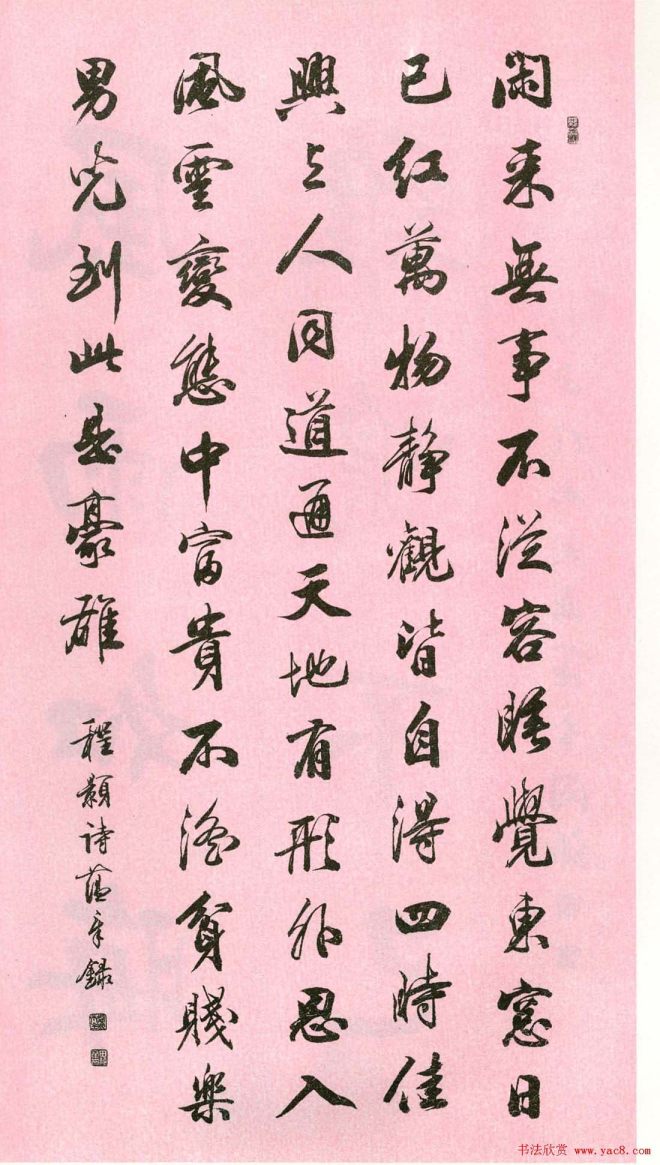 閑来無事不從容睡覺東窓日
已红萬物静觀皆自得四時佳
興与人同道通天地有形外思入
風雲變態中富貴不淫貧賤樂
男兒到此是豪雄
程顥詩 录
书法欣赏 www.yac8.com